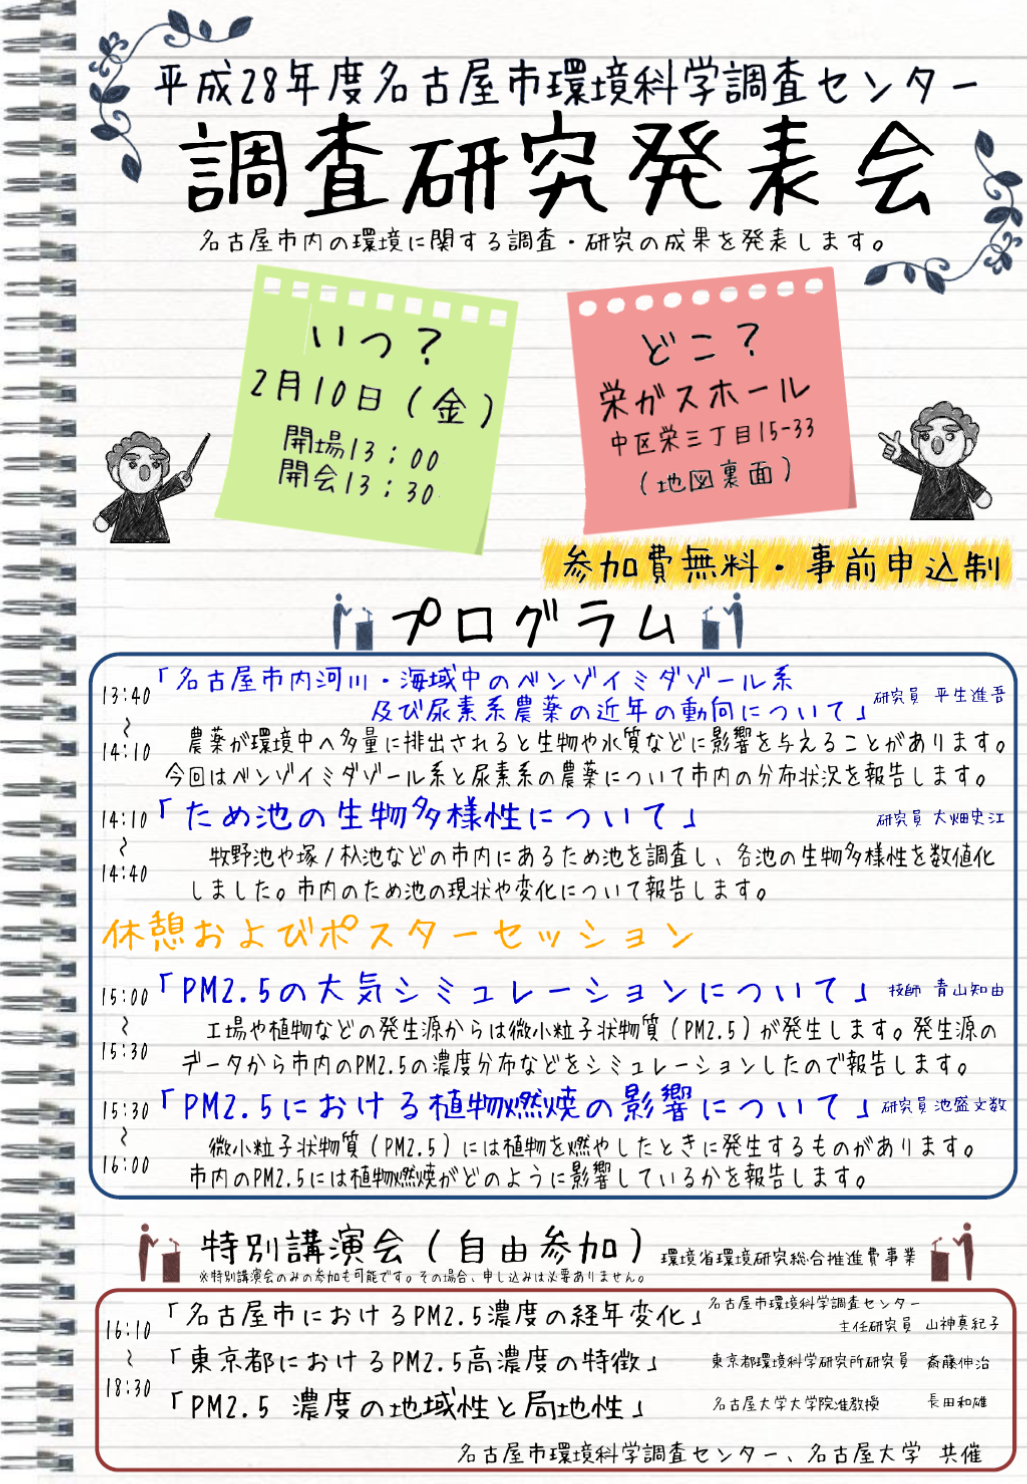 平成28年度名古屋市環境科学調査センター
調査研究発表会
名古屋市内の環境に関する調査・研究の成果を発表します。
いつ?
2月10日(金)
開場13:00
開会13:30
どこ?
栄ガスホール
中区栄三丁目15-33
(地図裏面)
参加費無料・事前申込制
プログラム
13:40
~
14:10
「名古屋市内河川・海域中のベンゾイミダゾール系
及び尿素系農薬の近年の動向について」
研究員 平生進吾
農薬が環境中へ多量に排出されると生物や水質などに影響を与えることがあります。
今回はベンゾイミダゾール系と尿素系の農薬について市内の分布状況を報告します。
14:10
~
14:40
「ため池の生物多様性について」
研究員 大畑史江
牧野池や塚ノ杁池などの市内にあるため池を調査し、各池の生物多様性を数値化
しました。市内のため池の現状や変化について報告します。
休憩およびポスターセッション
15:00
~
15:30
「PM2.5の大気シミュレーションについて」
技師 青山知由
工場や植物などの発生源からは微小粒子状物質(PM2.5)が発生します。発生源の
データから市内のPM2.5の濃度分布などをシミュレーションしたので報告します。
15:30
~
16:00
「PM2.5における植物燃焼の影響について」
研究員 池盛文数
微小粒子状物質(PM2.5)には植物を燃やしたときに発生するものがあります。
市内のPM2.5には植物燃焼がどのように影響しているかを報告します。
特別講演会(自由参加)
環境省環境研究総合推進費事業
※特別講演会のみの参加も可能です。その場合、申し込みは必要ありません。
16:10
~
18:30
「名古屋市におけるPM2.5濃度の経年変化」
名古屋市環境科学調査センター
主任研究員 山神真紀子
「東京都におけるPM2.5高濃度の特徴」
東京都環境科学研究所研究員 斎藤伸治
「PM2.5 濃度の地域性と局地性」
名古屋大学大学院准教授 長田和雄
名古屋市環境科学調査センター、名古屋大学 共催